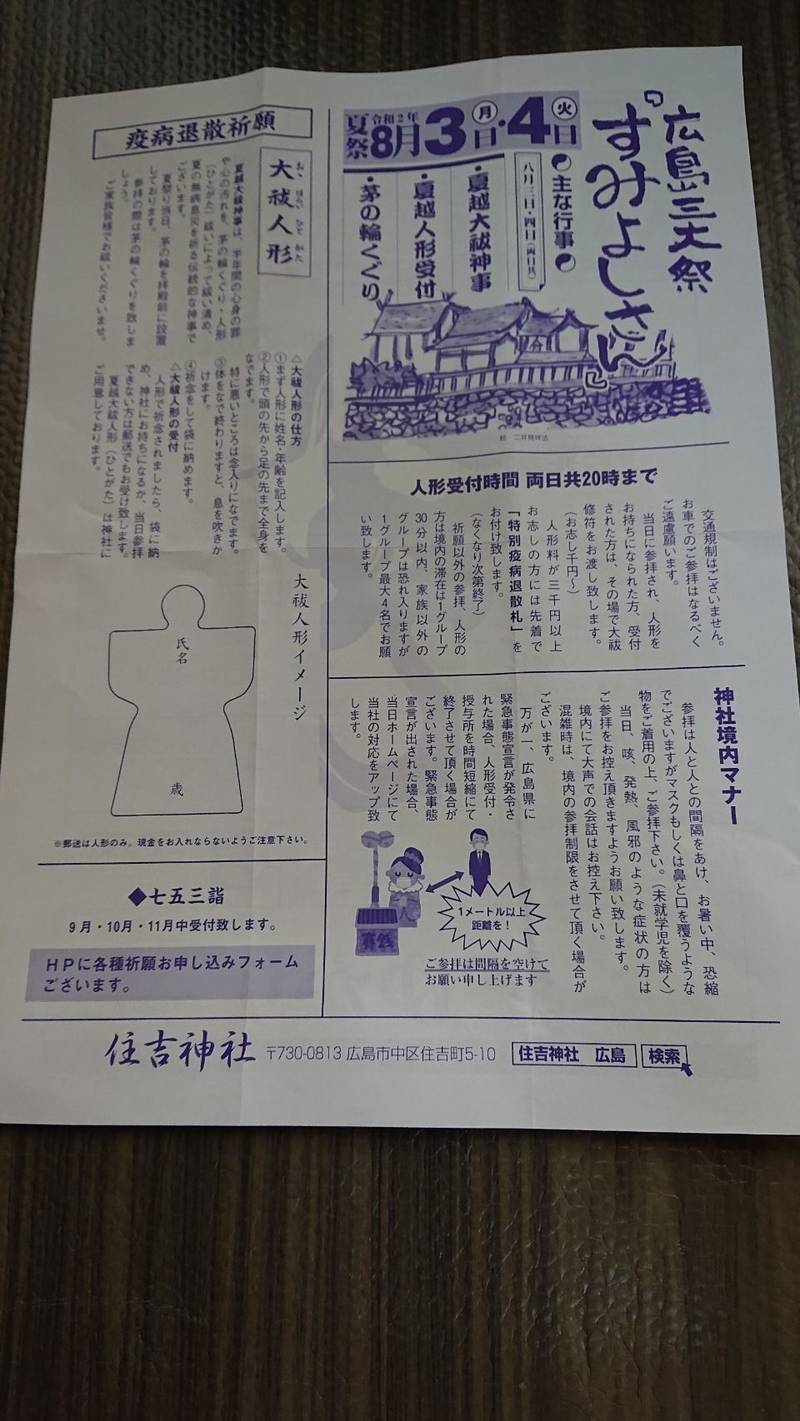 広島三大祭
『すみよしさん』
夏祭
令和2年
8月3日(月)・4日(火)
主な行事
八月三日・四日(両日共)
・夏越大祓神事
・夏越人形受付
・茅の輪くぐり
人形受付時間 両日共20時まで
交通規制はございません。
お車でのご参拝はなるべく
ご遠慮願います。
当日に参拝され、人形を
お持ちになられた方、受付
された方は、その場で大祓
修符をお渡し致します。
(お志し千円〜)
人形料が三千円以上
お志しの方には先着で
「特別疫病退散札」を
お付け致します。
(なくなり次第終了)
祈願以外の参拝、人形の
方は境内の滞在は1グループ
30分以内、家族以外の
グループは恐れ入りますが
1グループ最大4名でお願
い致します。
神社境内マナー
参拝は人と人との間隔をあけ、お暑い中、恐縮
でございますがマスクもしくは鼻と口を覆うような
物をご着用の上、ご参拝下さい。(未就学児を除く)
当日、咳、発熱、風邪のような症状の方は
ご参拝をお控え頂きますようお願い致します。
境内にて大声での会話はお控え下さい。
混雑時は、境内の参拝制限をさせて頂く場合が
ございます。
万が一、広島県に
緊急事態宣言が発令さ
れた場合、人形受付・
授与所を時間短縮にて
終了させて頂く場合が
ございます。緊急事態
宣言が出された場合、
当日ホームページにて
当社の対応をアップ致
します。
1メートル以上
距離を!
賽銭
ご参拝は間隔を空けて
お願い申し上げます
疫病退散祈願
大祓人形
おおはらいひとがた
夏越大祓神事は、半年間の心身の罪
や心の汚れを、茅の輪くぐり・人形
(ひとがた)祓いによって祓い清め、
夏の無病息災を祈る伝統的な神事で
ございます。
夏祭り当日、茅の輪を拝殿前に設置
しております。
参拝の際は茅の輪くぐりを致しま
しょう。
ご家族皆様でお祓いくださいませ。
△大祓人形の仕方
①まず人形に姓名・年齢を記入します。
②人形で頭の先から足の先まで全身を
なでます。
特に悪いところは念入りになでます。
③体をなで終わりますと、息を吹きか
けます。
④祈念をして袋に納めます。
△大祓人形の受付
人形で祈念されましたら、袋に納
め、神社にお持ちになるか、当日参拝
できない方は郵送でもお受け致します。
夏越大祓人形(ひとがた)は神社に
ご用意しております。
大祓人形イメージ
氏名
歳
※郵送は人形のみ。現金をお入れならないようご注意下さい。
◆七五三詣
9月・10月・11月中受付致します。
HPに各種祈願お申し込みフォーム
ございます。
住吉神社 〒730-0813 広島市中区住吉町5-10 住吉神社 広島 検索